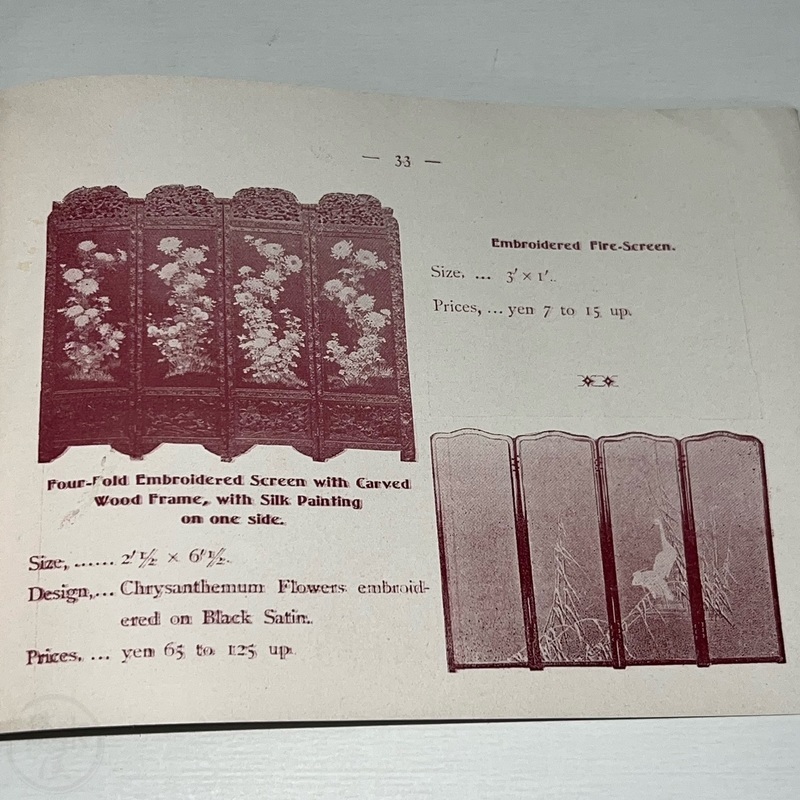 — 33 —
Four-Fold Embroidered Screen with Carved
Wood Frame, with Silk Painting
on one side.
Size, ...... 2' ½ × 6' ½.
Design, ... Chrysanthemum Flowers embroid-
ered on Black Satin.
Prices, ... yen 65 to 125 up.
Embroidered Fire-Screen.
Size, ... 3' × 1'.
Prices, ... yen 7 to 15 up.